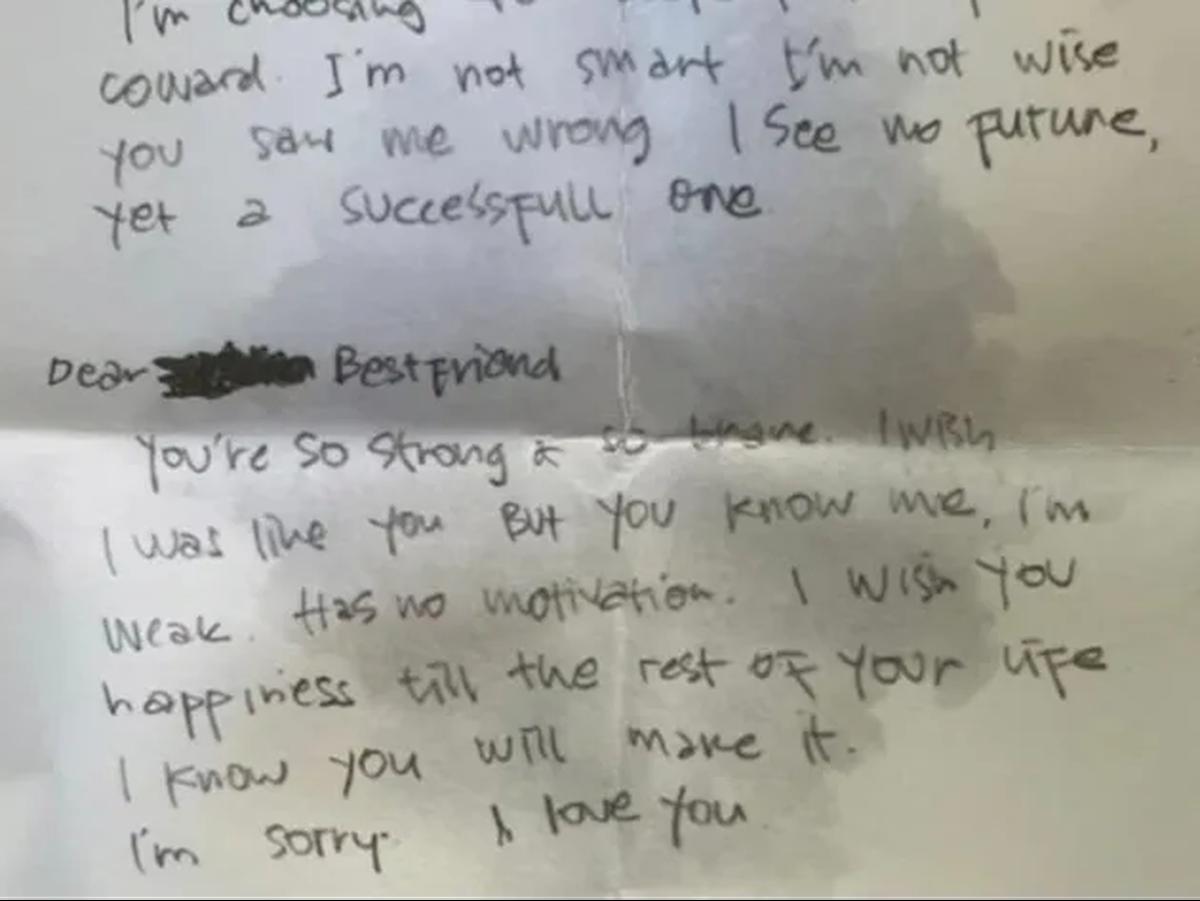 I'm choosing
coward. I'm not smart I'm not wise
you saw me wrong I see no future,
yet a successfull one
Dear Bestfriend
You're so strong & so brave. I wish
I was like you But you know me, I'm
weak. Has no motivation. I wish you
happiness till the rest of your life
I know you will make it.
I'm sorry. I love you